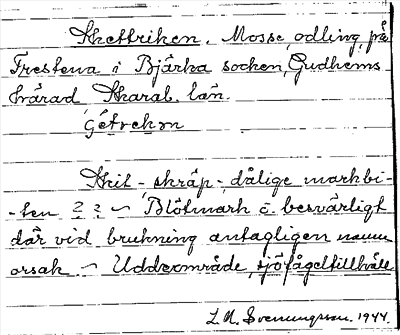 Skettriken. Mosse, odling, på
Trestena i Bjärka socken, Gudhems
härad Skarab. län.
Skit-, skräp-, dålige markbi-
-ten ? ? ~ Blötmark o. besvärligt
där vid brukning antagligen namn
orsak. ~ Uddeområde, sjöfågeltillhåll
L. M. Svenungsson. 1944.